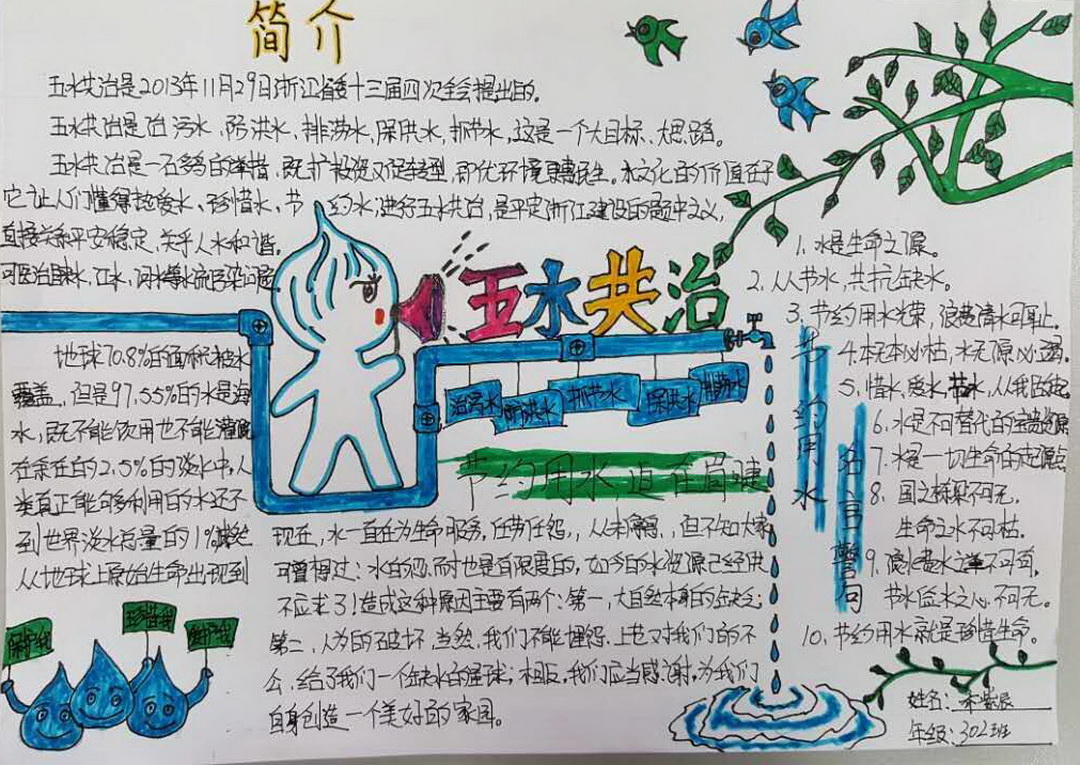 简介
五水共治是2013年11月29日浙江省委十三届四次全会提出的。
五水共治是治污水、防洪水、排涝水、保供水、抓节水,这是一个大目标、大思路。
五水共治是一石多鸟的举措,既扩投资又促转型,即优环境更惠民生。水文化的价值在于
它让人们懂得热爱水、珍惜水、节约水,进行五水共治,是平定浙江建设的题中之义,
直接关系平安稳定、关乎人水和谐。
可医治日常水,江水,河水等水流污染问题
五水共治
地球70.8%的面积被水
覆盖,但是97.55%的水是海
水,既不能饮用也不能灌溉
在余在的2.5%的淡水中,人
类真正能够利用的水还不
到世界淡水总量的1%
从地球上原始生命出现到
治污水
防洪水
抓节水
保供水
排涝水
节约用水,迫在眉睫
现在,水一直在为生命服务,任劳任怨,从未停息,但不知大家
可曾想过:水的忍耐也是有限度的,如今的水资源已经供
不应求了!造成这种原因主要有两个:第一,大自然本身的缺乏;
第二,人为的破坏,当然,我们不能埋怨上苍对我们的不
公,给了我们一个缺水的星球;相反,我们应当感谢,为我们
自身创造一个美好的家园。
保护我
珍惜我
节约用水
名言警句
1. 水是生命之源。
2. 人人节水,共抗缺水。
3. 节约用水光荣,浪费清水可耻。
4. 木无本必枯,水无源必竭。
5. 惜水、爱水、节水,从我做起。
6. 水是不可替代的宝贵资源
7. 水是一切生命的起源点
8. 国之栋梁不可无,
生命之水不可枯。
9. 
节水惜水之心不可无。
10. 节约用水就是珍惜生命。
姓名:
年级:302班